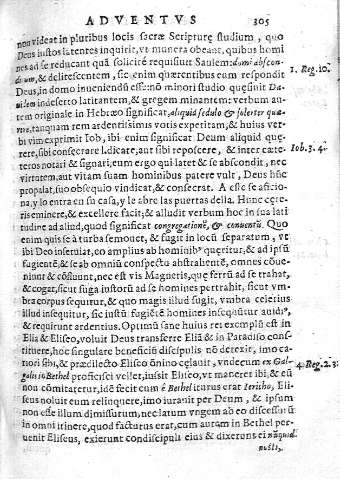 ADVENTVS 305
non videat in pluribus locis sacræ Scripturę studium, quo
Deus iustos latentes inquirit, vt munera obeant, quibus homi
nes ad se reducant quā solicitè requisiuit Saulem: domi abscon-
ditum, & delitescentem, sic enim quærentibus eum respondit
Deus, in domo inueniendū esse: nō minori studio quęsiuit Da
uidem in deserto latitantem, & gregem minantem: verbum au-
tem originale in Hebræo significat, aliquid sedulo & solerter quæ
rere, tanquam rem ardentissimos votis expetitam, & huius ver-
bi vim exprimit Iob, ibi enim significat Deum aliquid quę-
rere, sibi consecrare, dicare, aut sibi reposcere, & inter cæte-
teros notari & signari, eum ergo qui latet & se abscondit, nec
virtutem, aut vitam suam hominibus patere vult, Deus hūc
propalat, suo obsequio vindicat, & consecrat. A esse se aficio-
na, y lo entra en su casa, y le abre las puertas della. Hunc cęte-
ris eminere, & excellere facit; & alludit verbum hoc in sua lati
tudine ad aliud, quod significat congregationē, & conuentū. Quo
enim quis se à turba semouet, & fugit in locū separatum, vt
ibi Deo inseruiat, eo amplius ab hominibº quęritur, & ad ipsū
fugientē, & se ab omniū conspectu abstrahentē, omnes cōue-
niunt & cōfluunt, nec est vis Magneris, quę ferrū ad se trahat,
& cogat, sicut fuga iustorū ad se homines pertrahit, sicut vm-
bra corpus sequitur, & quo magis illud fugit, vmbra celerius
illud insequitur, sic iustū fugiētē homines insequūtur auidiº,
& requirunt ardentius. Optimū sane huius rei exemplū est in
Elia & Eliseo, voluit Deus transferre Eliā & in Paradiso consti-
tuere, hoc singulare beneficiū discipulis nō dērexit, imo ca-
riori sibi, & prædilecto Eliseo ōnino celauit, vndecum ex Gal-
galis in Bethel proficisci vellet, iussit Eliseo, vt maneret ibi, & eū
non cōmitaretur, idē fecit cum è Bethel iturus erat Iericho, Eli-
seus noluit eum relinquere, imo iurauit per Deum, & ipsum
non esse illum dimissurum, nec latum vngem ab eo discessurū
in omni itinere, quod facturus erat, cum autem in Bethel per-
uenit Eliseus, exierunt condiscipuli eius & dixerunt ei nunquid
nosti,
1. Reg. 10.
Iob. 3. 4.
4. Reg. 2. 3.